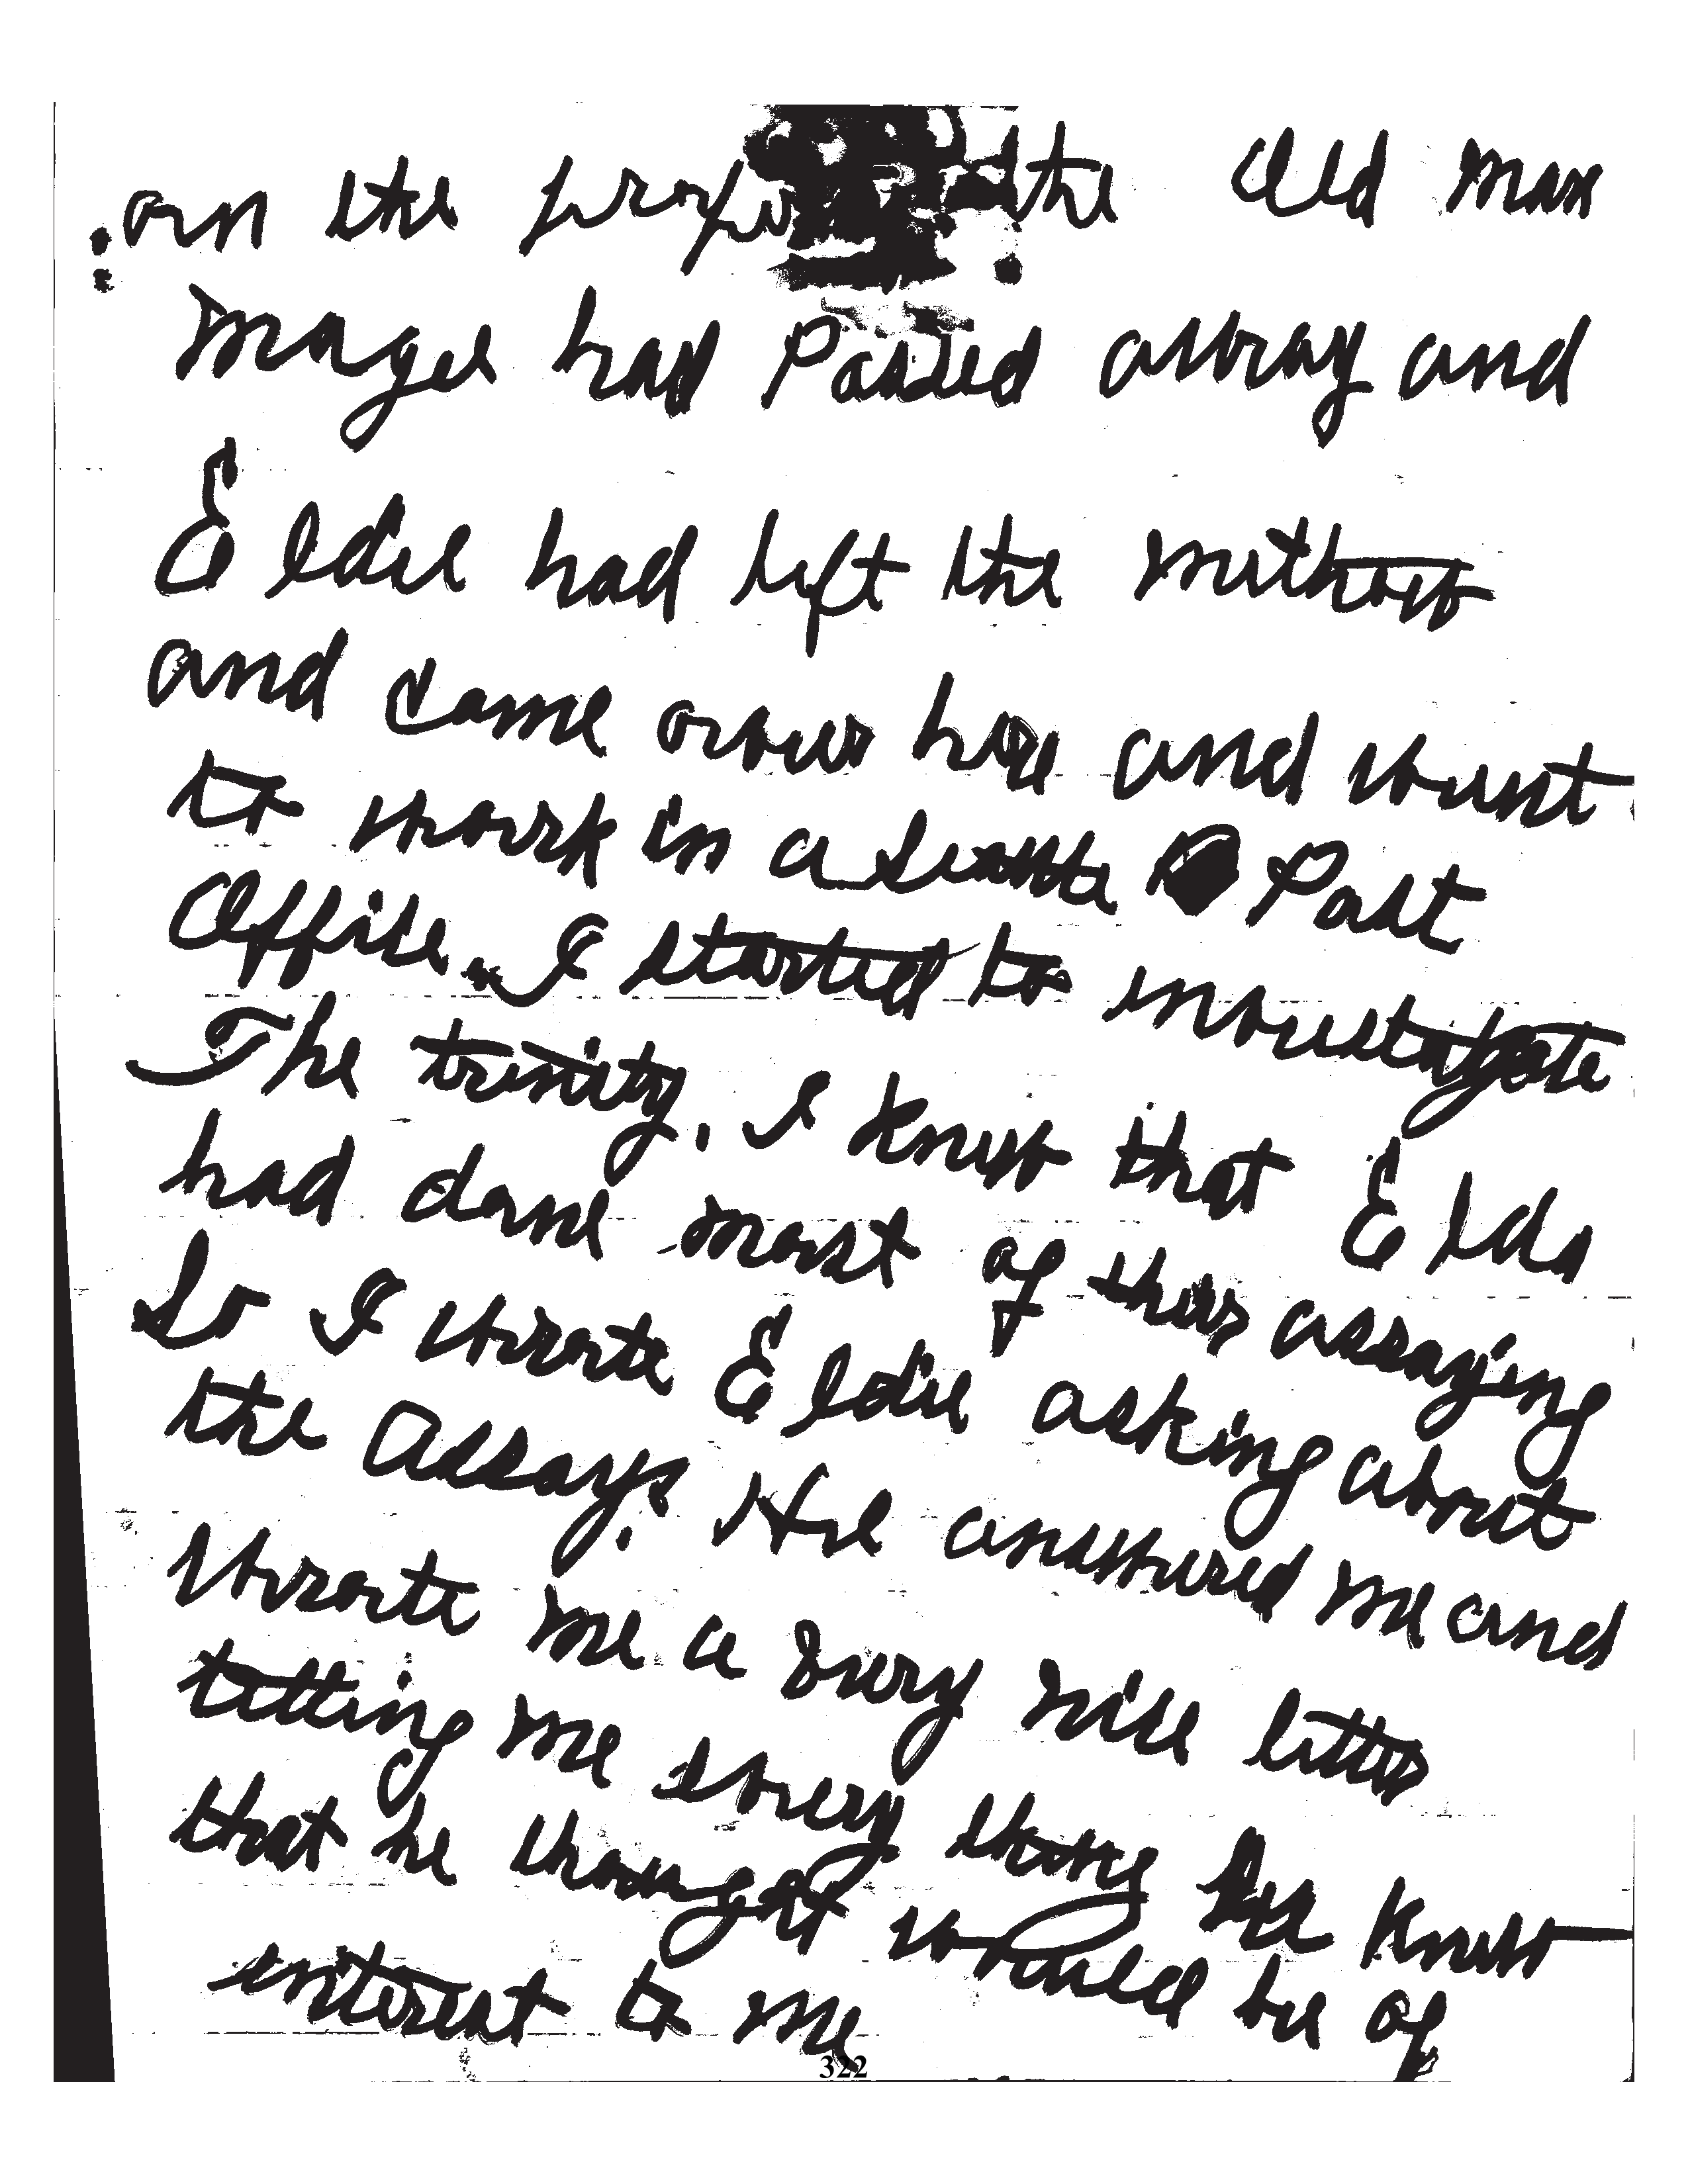 on the the Old man
Mages had Passed away and
Eldie had left the methow
and came over here and went
to work in a Seattle Post
Office. I started to investigate
The trinity, I knew that Elda
had done most of their assaying
So I wrote Eldie asking about
the Assays. He answered me and
wrote me a very nice letter
telling me every thing he knew
that he thought would be of
interest to me
322